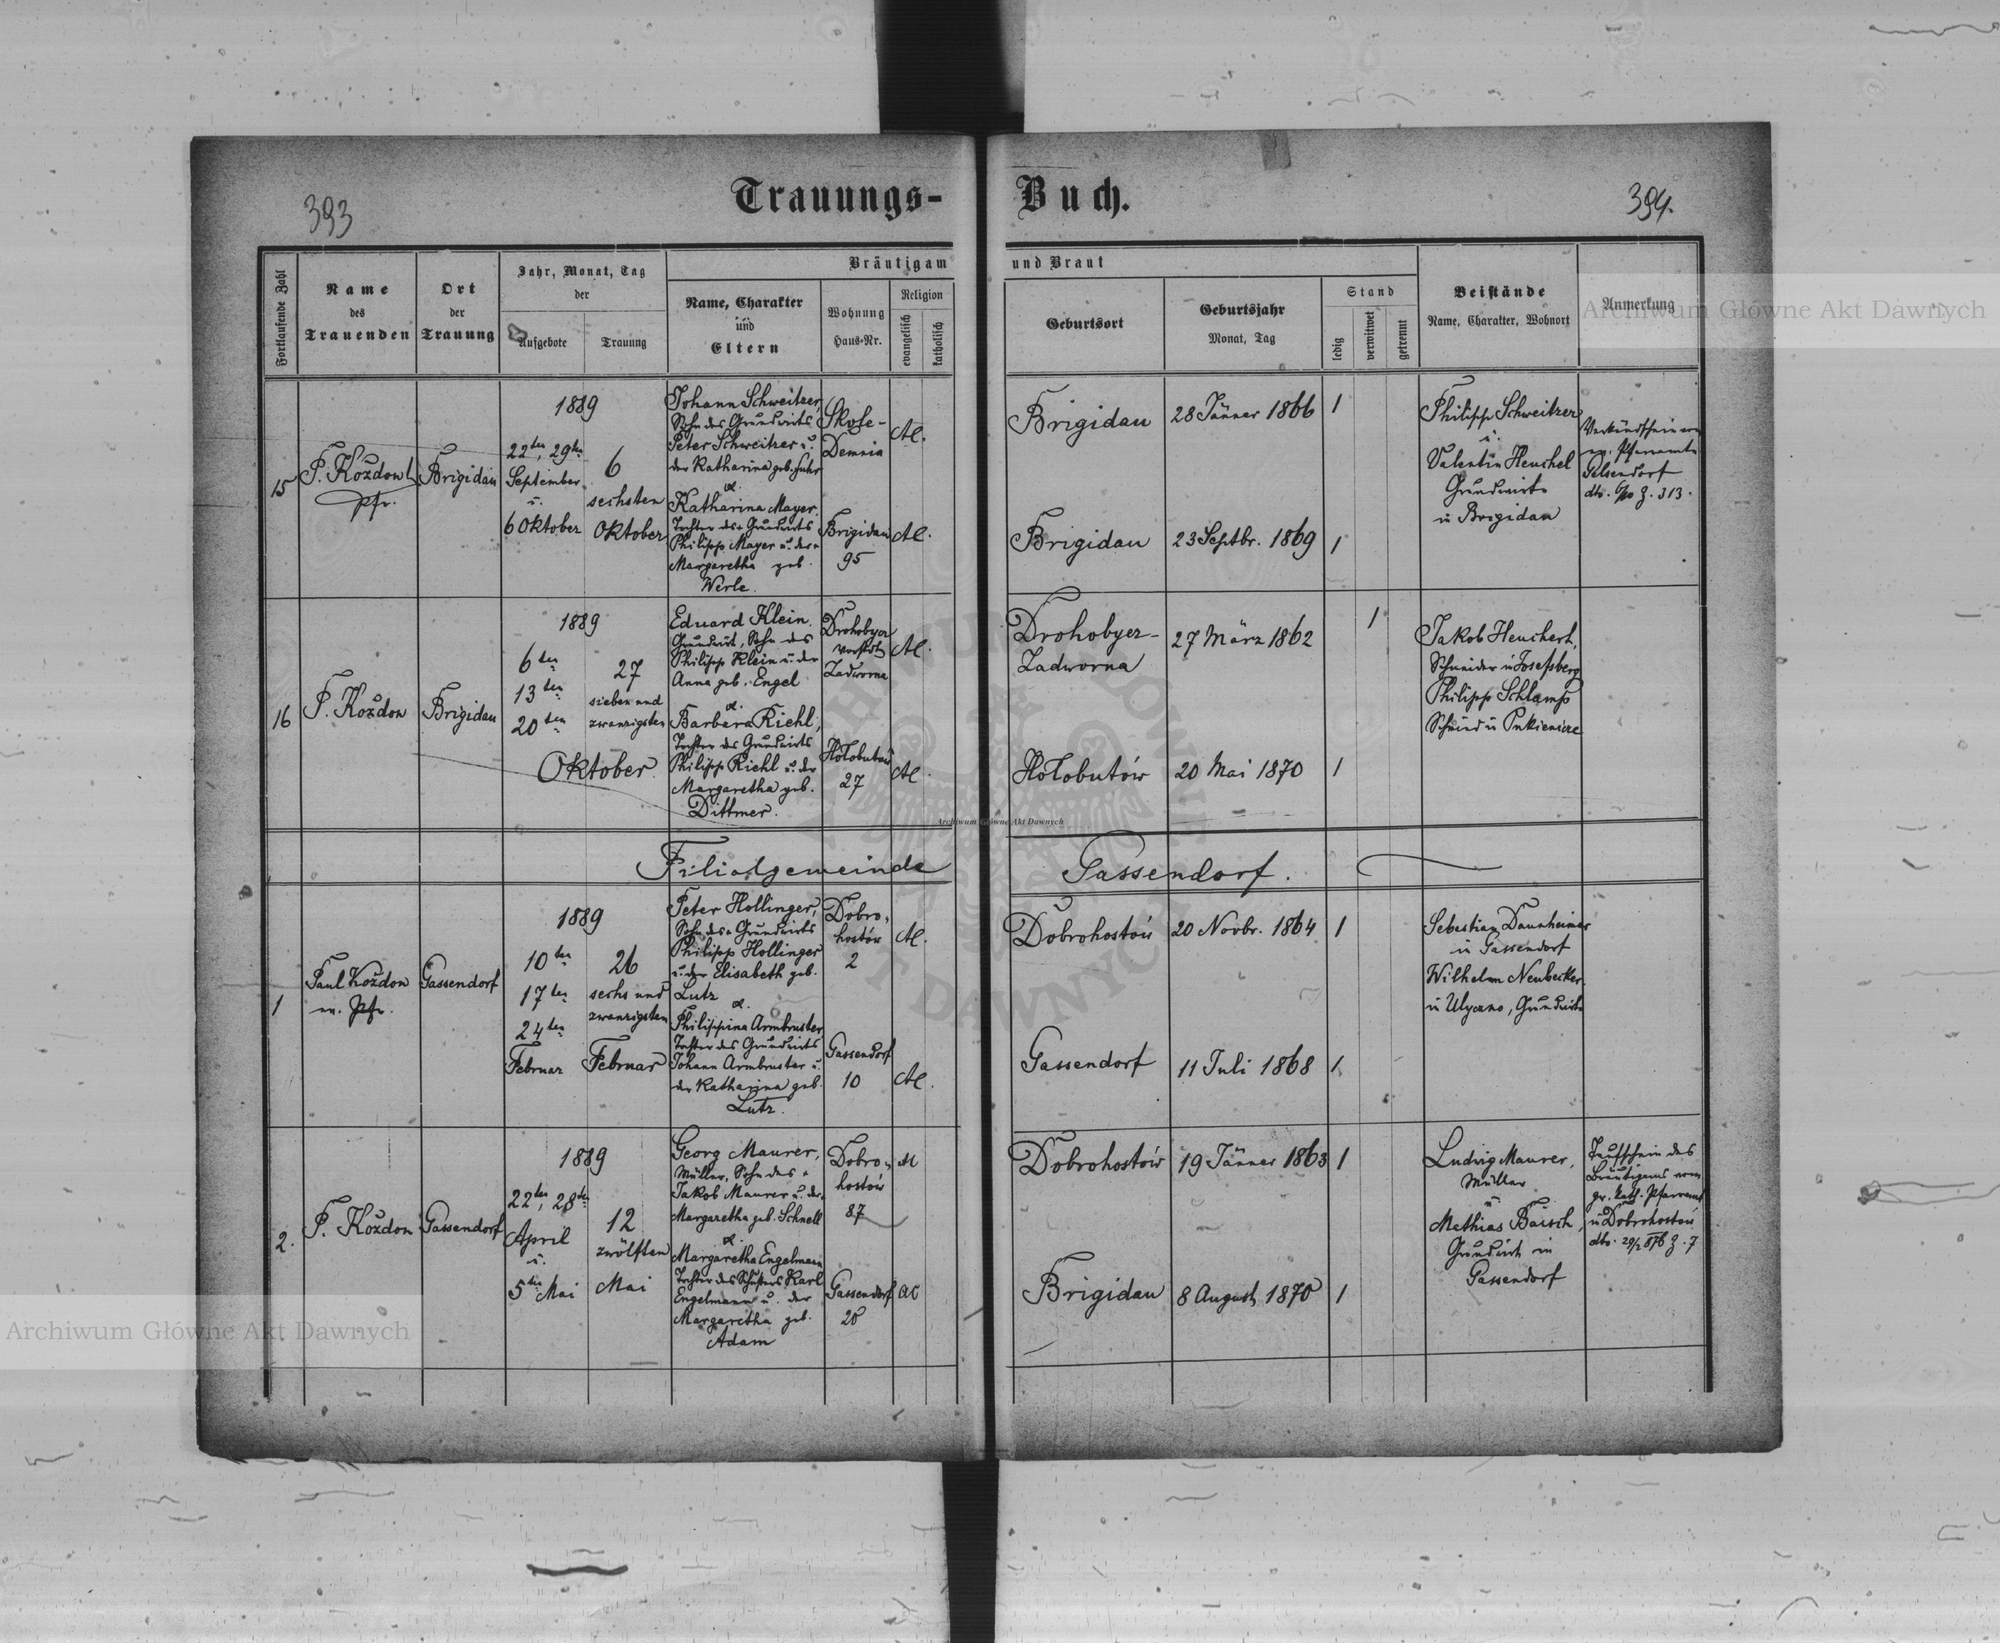 393
Trauungs-
Buch.
394.
Fortlaufende Zahl
Name
des
Trauenden
Ort
der
Trauung
Jahr, Monat, Tag
der
Aufgebote
Trauung
Bräutigam
und Braut
Name, Charakter
und
Eltern
Wohnung
Haus-Nr.
Religion
evangelisch
katholisch
Geburtsort
Geburtsjahr
Monat, Tag
Stand
ledig
verwitwet
getrennt
Beistände
Name, Charakter, Wohnort
Anmerkung
15
P. Kozdon
Pfr.
Brigidau
1889
22ten, 29ten
September
u.
6 Oktober
6
sechsten
Oktober
Johann Schweitzer,
Sohn des Grundwirts
Peter Schweitzer u.
der Katharina geb. Fuhr
&.
Katharina Mayer.
Tochter des + Grundwirts
Philipp Mayer u. der +
Margaretha geb.
Werle.
Skole-
Demnia
Brigidau
95
AC.
AC.
Brigidau
28 Jänner 1866
1
Brigidau
23 Septbr. 1869
1
Philipp Schweitzer
u.
Valentin Henchel
Grundwirte
in Brigidau
Verkündschein vom
ev. Pfarramte
Gelsendorf
dto. 6/10 Z. 313.
16
P. Kozdon
Brigidau
1889
6ten
13ten
20ten
27
sieben und
zwanzigsten
Oktober
Eduard Klein.
Grundwirt, Sohn des
Philipp Klein u. der
Anna geb. Engel
&.
Barbara Riehl,
Tochter des Grundwirts
Philipp Riehl u. der
Margaretha geb.
Dittmer.
Drohobycz
Vorstadt
Zadworna
Hołobutów
27
AC.
AC.
Drohobycz-
Zadworna
27 März 1862
1
Hołobutów
20 Mai 1870
1
Jakob Henchert,
Schneider in Josefsberg
Philipp Schlamp
Schmied in Pukienicze
Filialgemeinde
Gassendorf.
1
Paul Kozdon
ev. Pfr.
Gassendorf
1889
10ten
17ten
24ten
Februar
26
sechs und
zwanzigsten
Februar
Peter Hollinger,
Sohn des + Grundwirts
Philipp Hollinger
u. der Elisabeth geb.
Lutz
&.
Philippina Armbruster
Tochter des Grundwirts
Johann Armbruster u.
der Katharina geb.
Lutz.
Dobro-
hostów
2
Gassendorf
10
AC.
AC.
Dobrohostów
20 Novbr. 1864
1
Gassendorf
11 Juli 1868
1
Sebestian Dannheimer
in Gassendorf
Wilhelm Neubecker.
in Ulyczno, Grundwirte
2.
P. Kozdon
Gassendorf
1889
22ten, 28ten
April
u.
5ten Mai
12
zwölften
Mai
Georg Maurer,
Müller, Sohn des +
Jakob Maurer u. der
Margaretha geb. Schnell
&.
Margaretha Engelmann
Tochter des Schusters Karl
Engelmann u. der
Margaretha geb.
Adam
Dobro-
hostów
87
Gassendorf
28
AC
AC
Dobrohostów
19 Jänner 1863
1
Brigidau
8 August 1870
1
Ludwig Maurer,
Müller
u.
Mathias Baisch,
Grundwirt in
Gassendorf
Taufschein des
Bräutigams vom
gr. kath. Pfarramt
in Dobrohostów
dto. 29/2 876 Z. 7
Archiwum Główne Akt Dawnych
Archiwum Główne Akt Dawnych
Archiwum Główne Akt Dawnych